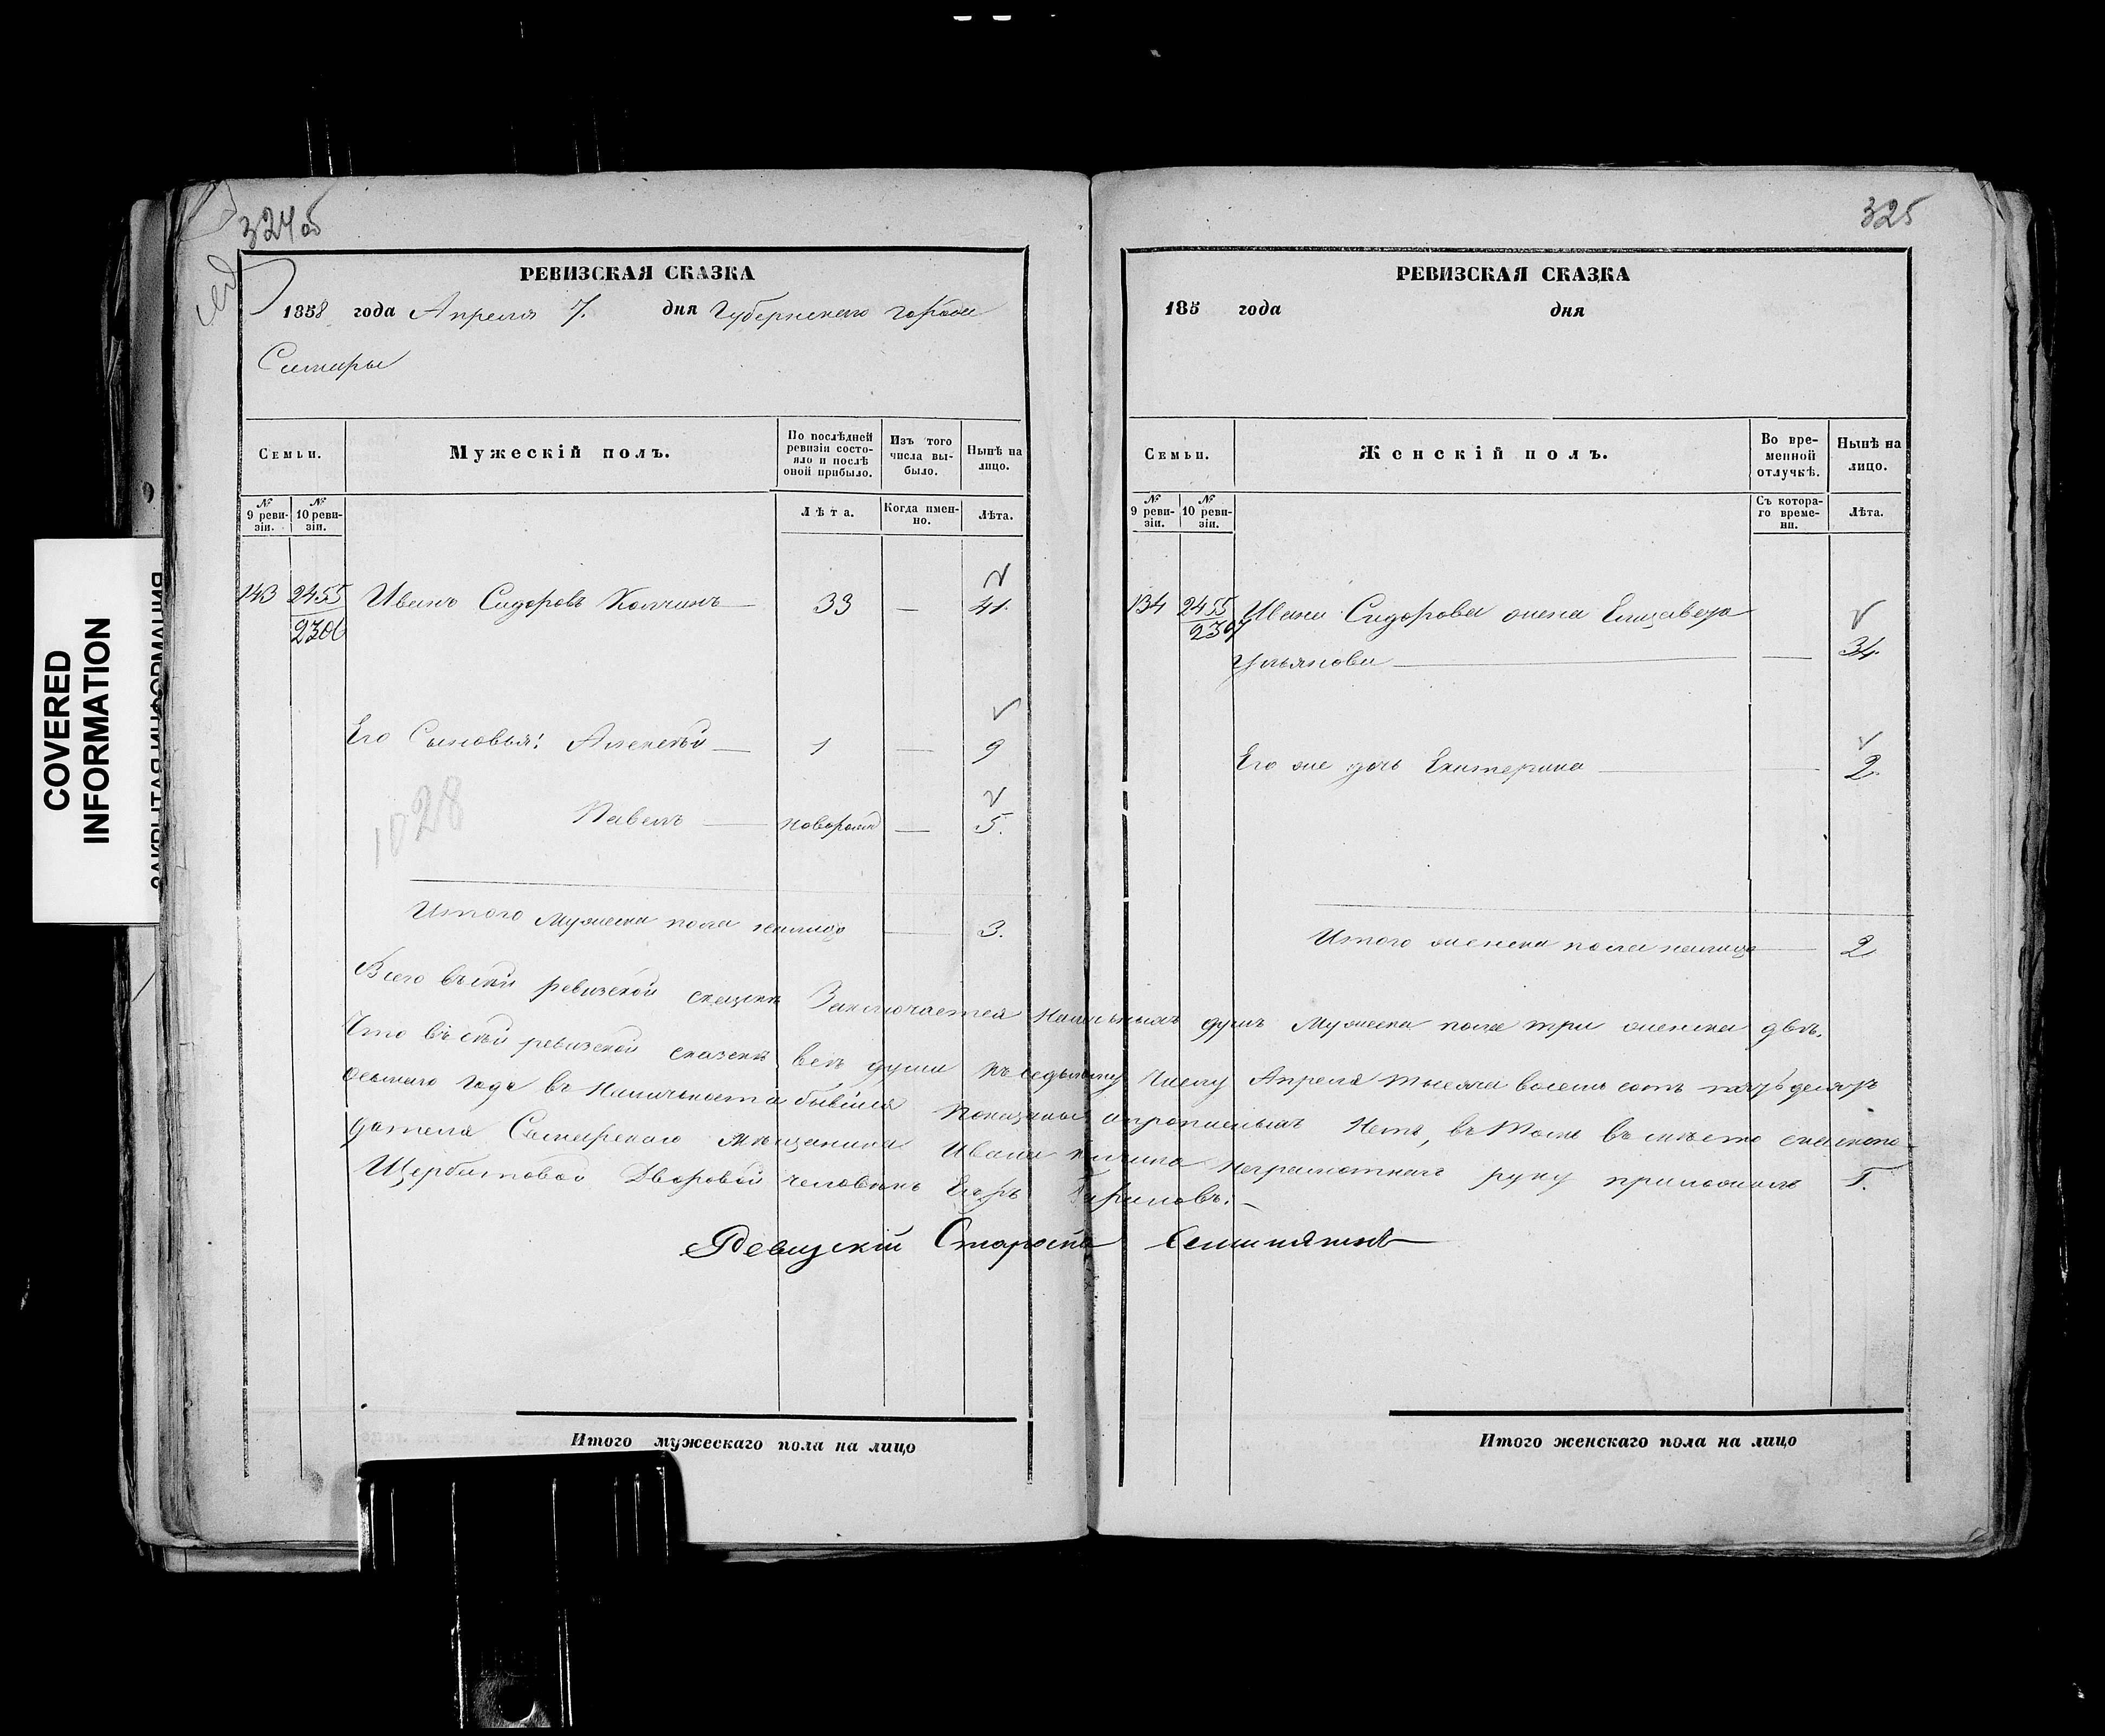 324об
РЕВИЗСКАЯ СКАЗКА
1858 года Апреля 7. дня Губернскаго города
Самары
Семьи.
Мужескій полъ.
По послѣдней ревизіи состояло и послѣ оной прибыло.
Изъ того числа выбыло.
Нынѣ на лицо.
№ 9 ревизіи.
№ 10 ревизіи.
Лѣта.
Когда именно.
Лѣта.
143 2455 Иванъ Сидоровъ Колчинъ 33 — 41.
2306
Его Сыновья: Алексѣй 1 — 9
Павелъ новорожд — 5.
1028
Итого Мужеска пола налицо 3.
325
РЕВИЗСКАЯ СКАЗКА
185 года дня
Семьи.
Женскій полъ.
Во временной отлучкѣ.
Нынѣ на лицо.
№ 9 ревизіи.
№ 10 ревизіи.
Съ котораго времени.
Лѣта.
134 2455 Ивана Сидорова жена Елизавета
Ульянова — 34.
Его же дочь Екатерина — 2.
Итого женска пола налицо 2
Всего въ сей ревизской сказкѣ Заключается Наличныхъ душъ Мужеска пола три женска двѣ.
Что въ сей ревизской сказкѣ всѣ души къ седьмому Числу Апреля тысяча восемь сотъ пятьдесятъ
осьмаго года въ Наличности бывшія показаны и прописныхъ Нетъ, въ томъ въ место сказкопо-
дателя Самарскаго мещанина Ивана неграмотнаго руку приложилъ Г.
Щербатовой Дворовой человѣкъ Егоръ
Ревизскій Староста
Итого мужескаго пола на лицо
Итого женскаго пола на лицо
COVERED
INFORMATION